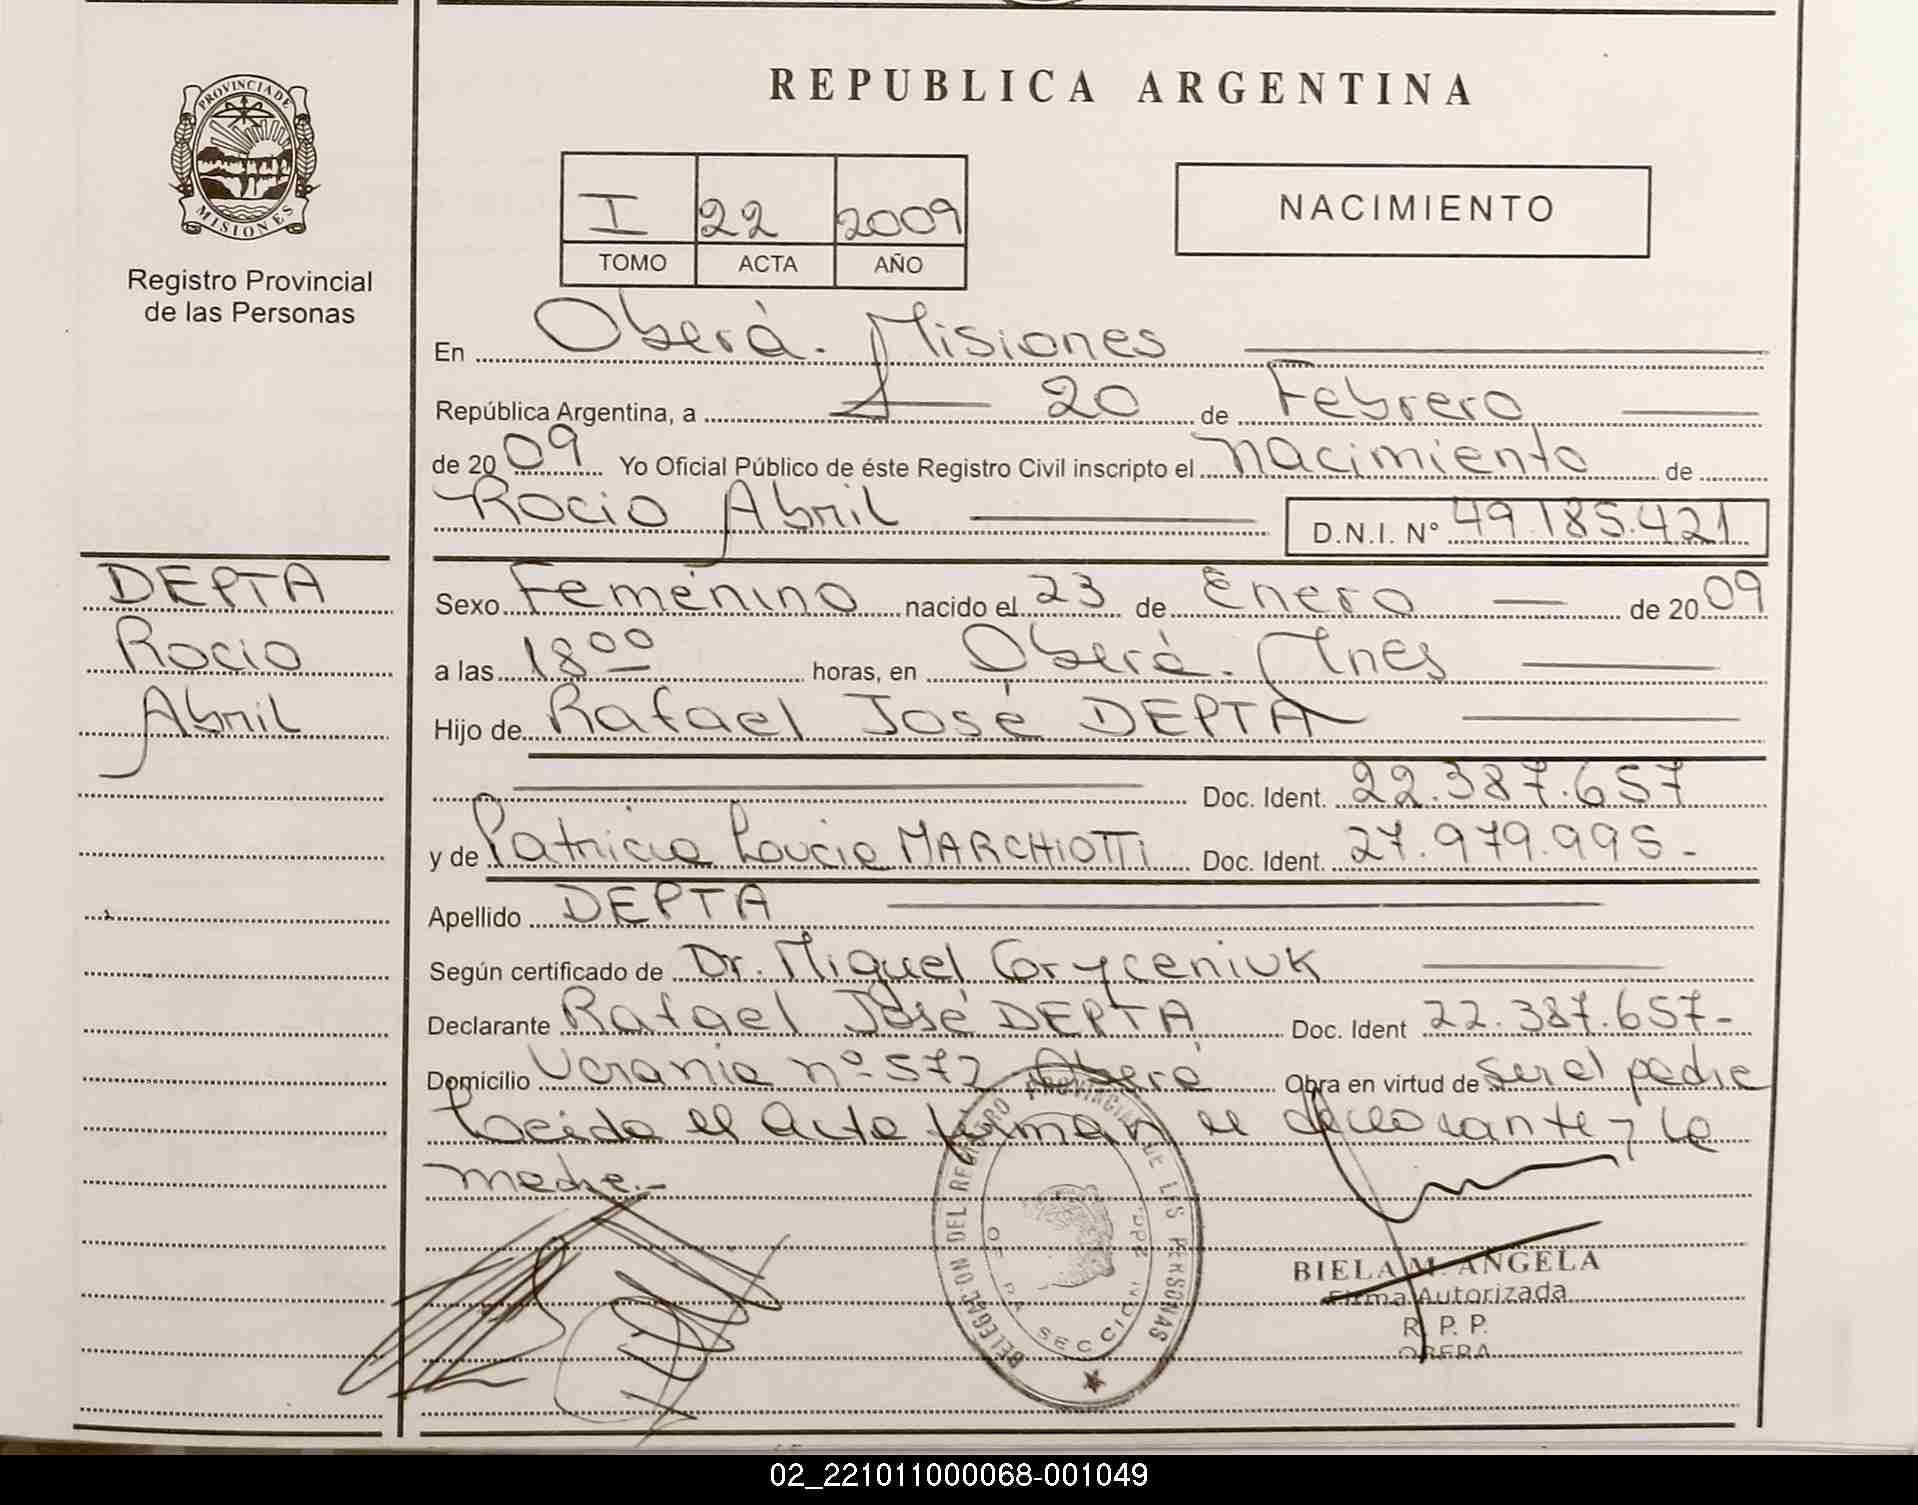 REPUBLICA ARGENTINA
PROVINCIA DE
MISIONES
Registro Provincial
de las Personas
I 22 2009
TOMO ACTA AÑO
NACIMIENTO
En Oberá. Misiones
República Argentina, a 20 de Febrero
de 2009 Yo Oficial Público de éste Registro Civil inscripto el nacimiento de
Rocio Abril D.N.I. Nº 49.185.421
DEPTA
Rocio
Abril
Sexo Femenino nacido el 23 de Enero de 2009
a las 18 00 horas, en Oberá. Mnes
Hijo de Rafael José DEPTA
Doc. Ident. 22.387.657
y de Patricia Lucia MARCHIOTTi Doc. Ident. 27.979.995-
Apellido DEPTA
Según certificado de Dr. Miguel Coryceniuk
Declarante Rafael José DEPTA Doc. Ident 22.387.657-
Domicilio Ucrania nº 572 Oberá Obra en virtud de ser el padre
Leida el acta firman el declarante y la
madre.-
DELEGACION DEL REGISTRO PROVINCIAL DE LAS PERSONAS
SECCION
BIELA M. ANGELA
Firma Autorizada
R. P. P.
OBERA
02_221011000068-001049